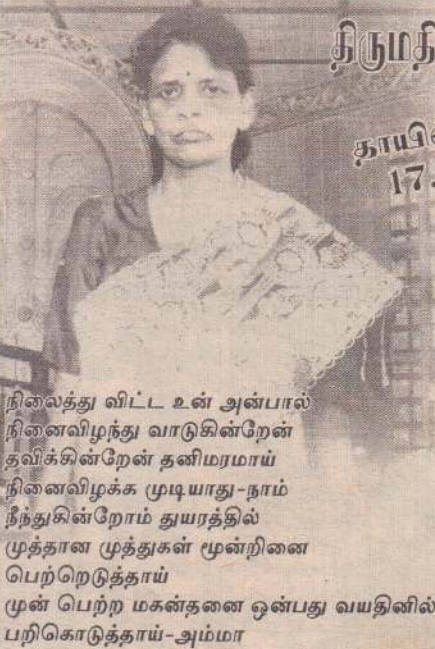 திருமதி
தாயின்
17.
நிலைத்து விட்ட உன் அன்பால்
நினைவிழந்து வாடுகின்றேன்
தவிக்கின்றேன் தனிமரமாய்
நினைவிழக்க முடியாது-நாம்
நீந்துகின்றோம் துயரத்தில்
முத்தான முத்துகள் மூன்றினை
பெற்றெடுத்தாய்
முன் பெற்ற மகன்தனை ஒன்பது வயதினில்
பறிகொடுத்தாய்-அம்மா